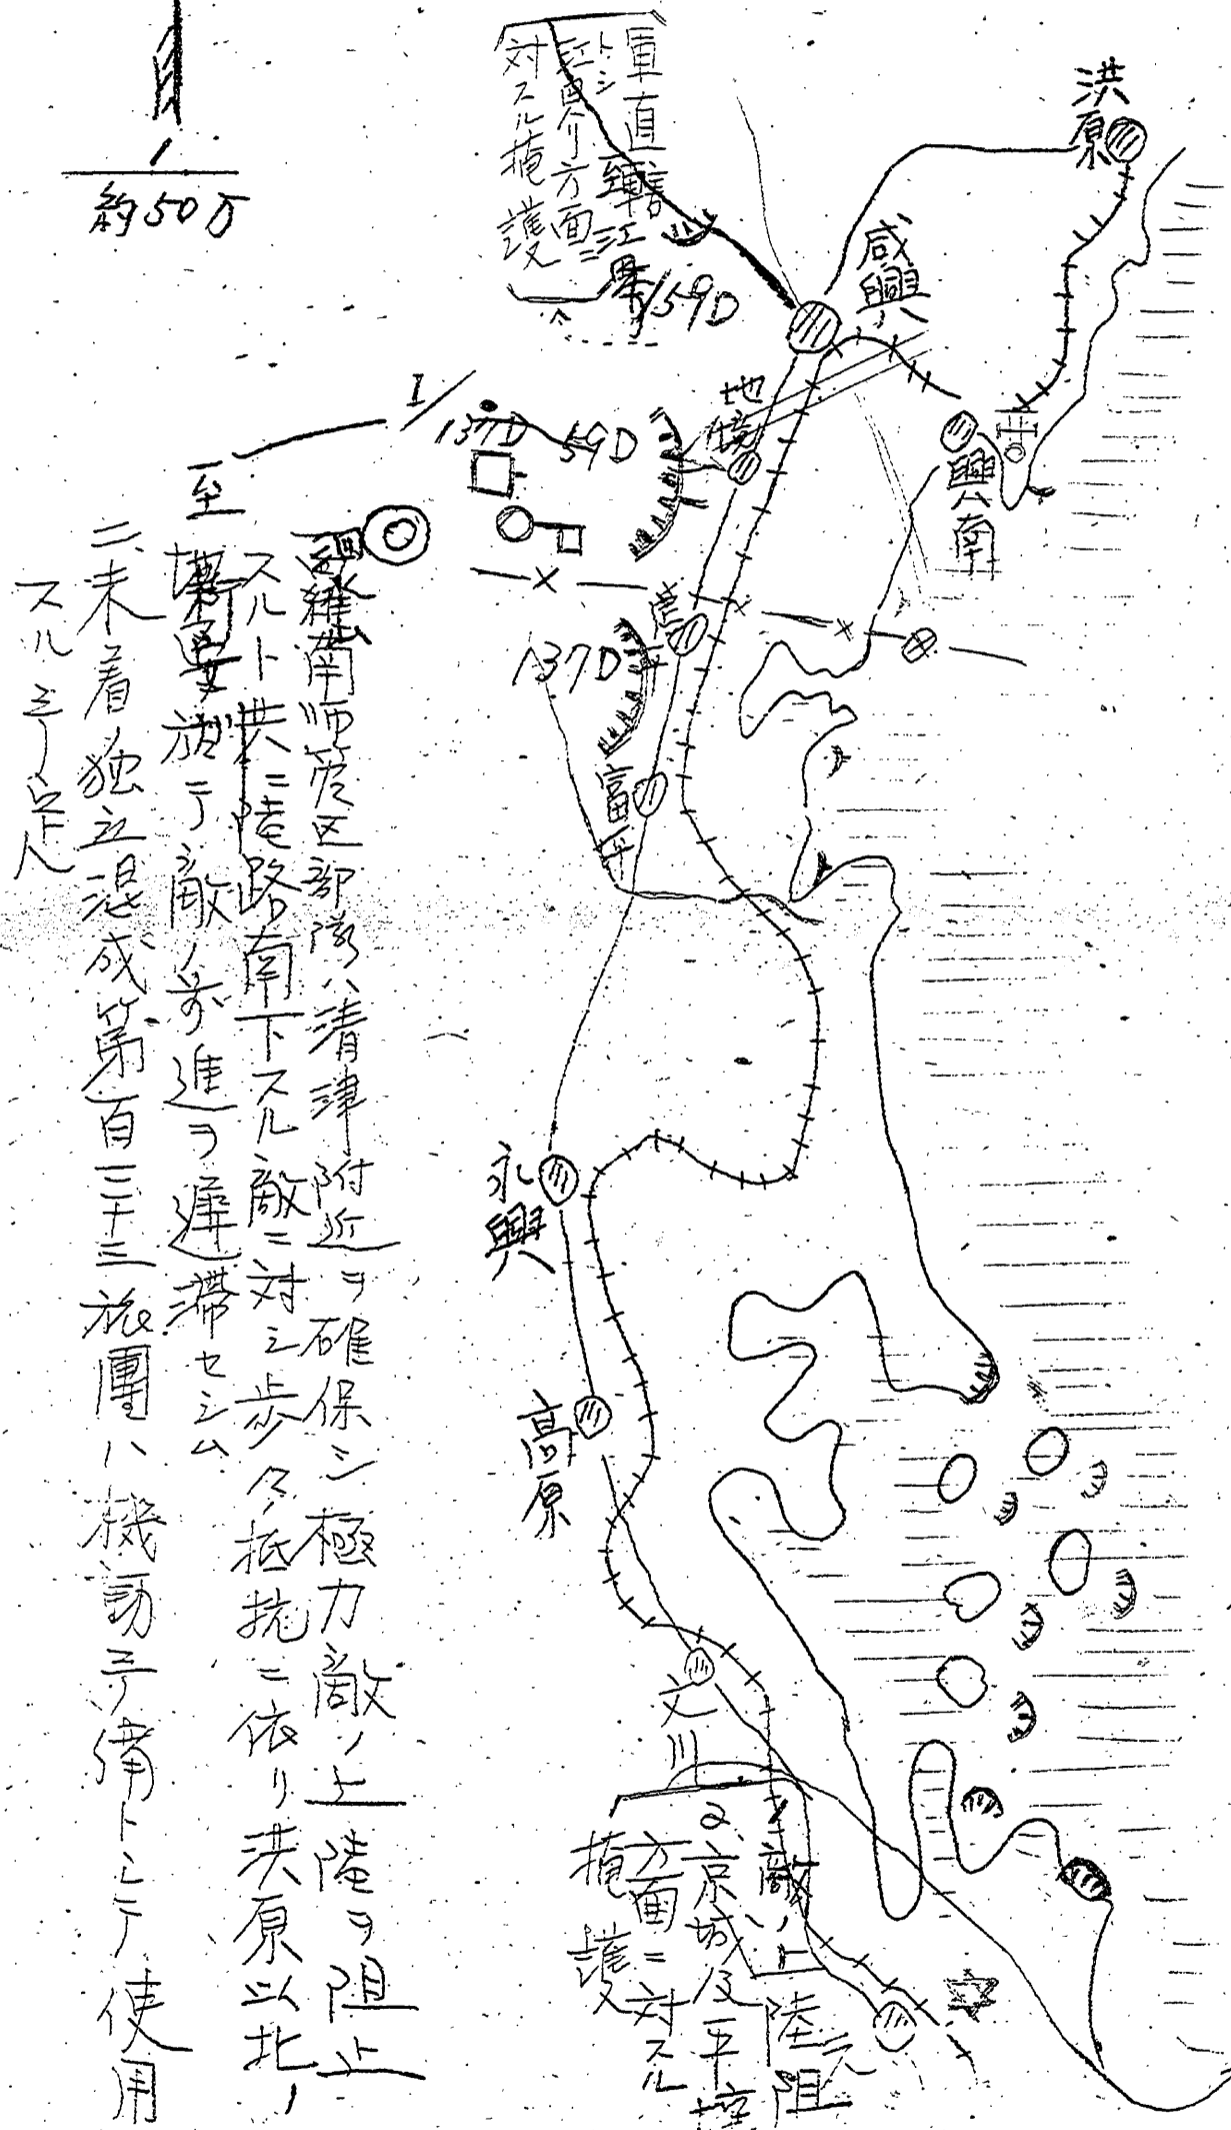 1
約50万
軍直轄
トシ
江界方面ニ
対スル掩護
至江界
/59D
洪原
咸興
地境
興南
I/137D
59D
137D
富坪
永興
高原
文川
元
敵ノ上陸阻
京城及平壌
方面ニ対スル
掩護
羅南師管区部隊ハ清津附近ヲ確保シ極力敵ノ上陸ヲ阻止
スルト共ニ陸路南下スル敵ニ対シ歩々ノ抵抗ニ依リ洪原以北ノ
要域ニテ敵ノ前進ヲ遅滞セシム
至
二、未着ノ独立混成第百三十三旅團ハ機動予備トシテ使用
スル予定